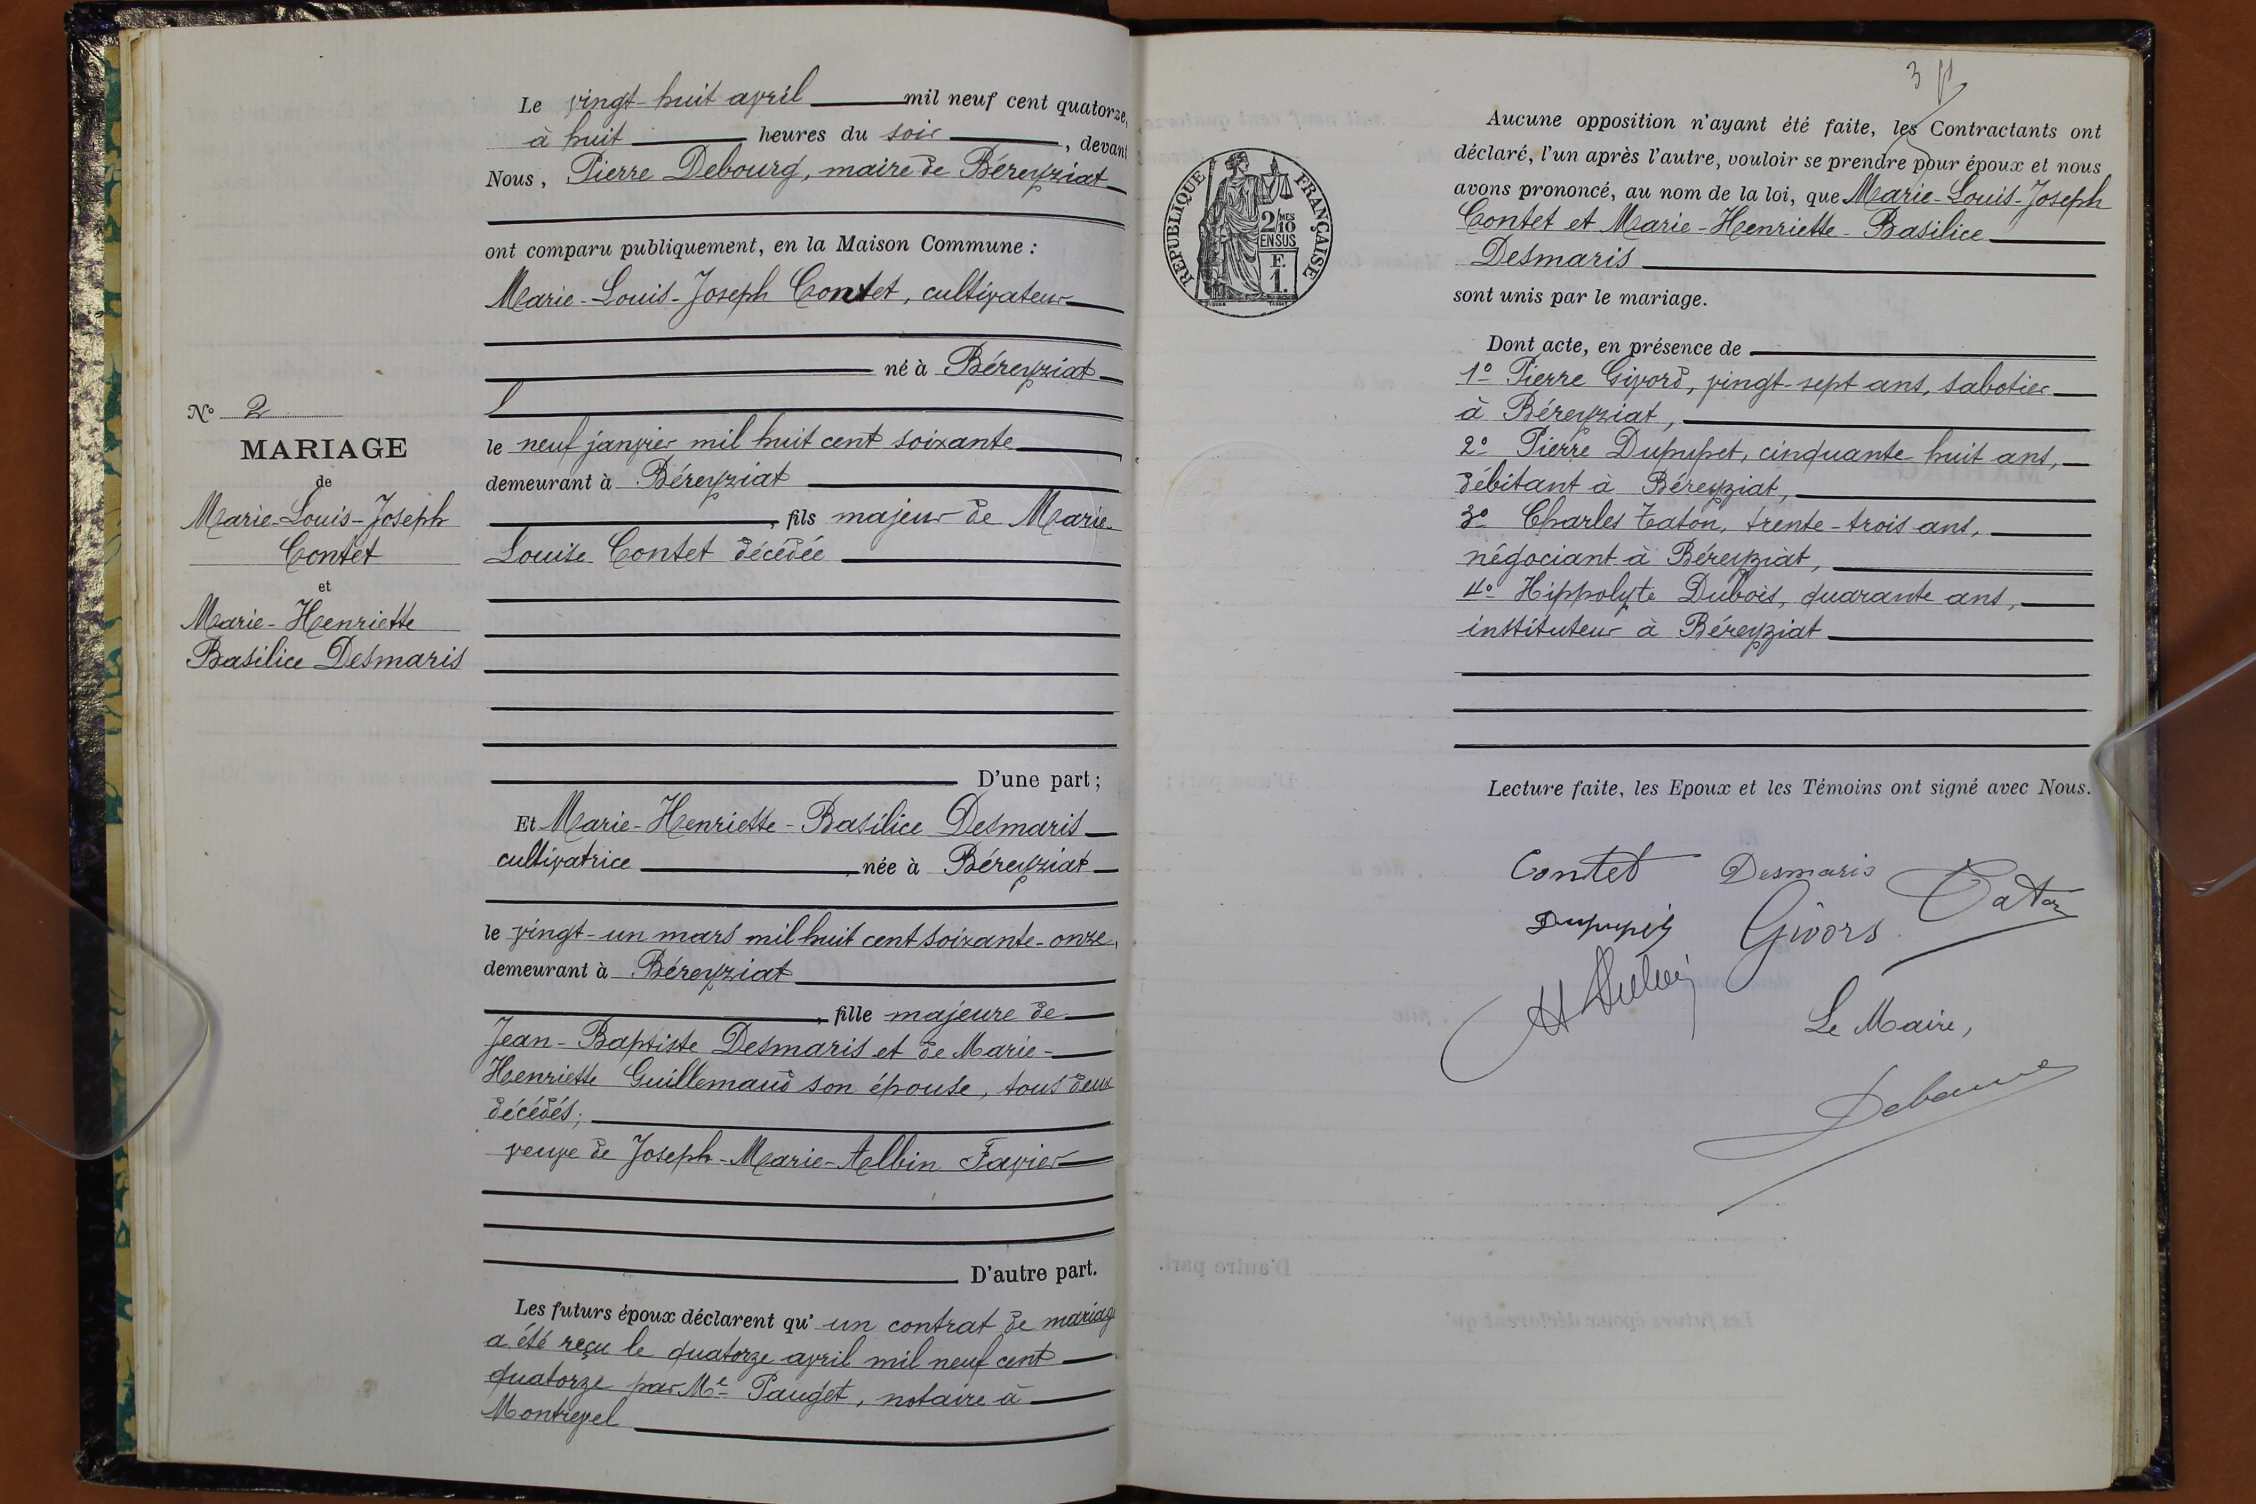 N° 2
MARIAGE
de
Marie-Louis-Joseph
Contet
et
Marie-Henriette
Basilice Desmaris
Le vingt-huit avril mil neuf cent quatorze,
à huit heures du soir, devant
Nous, Pierre Debourg, maire de Béreyziat
ont comparu publiquement, en la Maison Commune :
Marie-Louis-Joseph Contet, cultivateur
né à Béreyziat
le neuf janvier mil huit cent soixante
demeurant à Béreyziat
, fils majeur de Marie-
Louise Contet décédée
D'une part ;
Et Marie-Henriette-Basilice Desmaris
cultivatrice, née à Béreyziat
le vingt-un mars mil huit cent soixante-onze,
demeurant à Béreyziat
, fille majeure de
Jean-Baptiste Desmaris et de Marie-
Henriette Guillemaud son épouse, tous deux
décédés;
veuve de Joseph-Marie-Albin Favier
D'autre part.
Les futurs époux déclarent qu' un contrat de mariage
a été reçu le quatorze avril mil neuf cent
quatorze par Me Pauget, notaire à
Montrevel
RÉPUBLIQUE FRANÇAISE
2/10 MES
EN SUS
F.
1.
3
Aucune opposition n'ayant été faite, les Contractants ont
déclaré, l'un après l'autre, vouloir se prendre pour époux et nous
avons prononcé, au nom de la loi, que Marie-Louis-Joseph
Contet et Marie-Henriette-Basilice
Desmaris
sont unis par le mariage.
Dont acte, en présence de
1° Pierre Givord, vingt-sept ans, sabotier
à Béreyziat,
2° Pierre Dupupet, cinquante-huit ans,
débitant à Béreyziat,
3° Charles Taton, trente-trois ans,
négociant à Béreyziat,
4° Hippolyte Dubois, quarante ans,
instituteur à Béreyziat
Lecture faite, les Epoux et les Témoins ont signé avec Nous.
Contet Desmaris Taton
Dupupet Givors
H Dubois
Le Maire,
Debourg